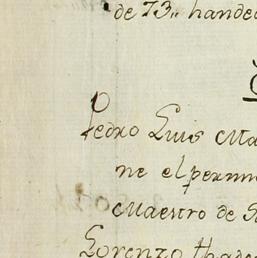 de 73" handed
Pedro Luis Ma
ne el permi
Maestro de S
Lorenzo thade